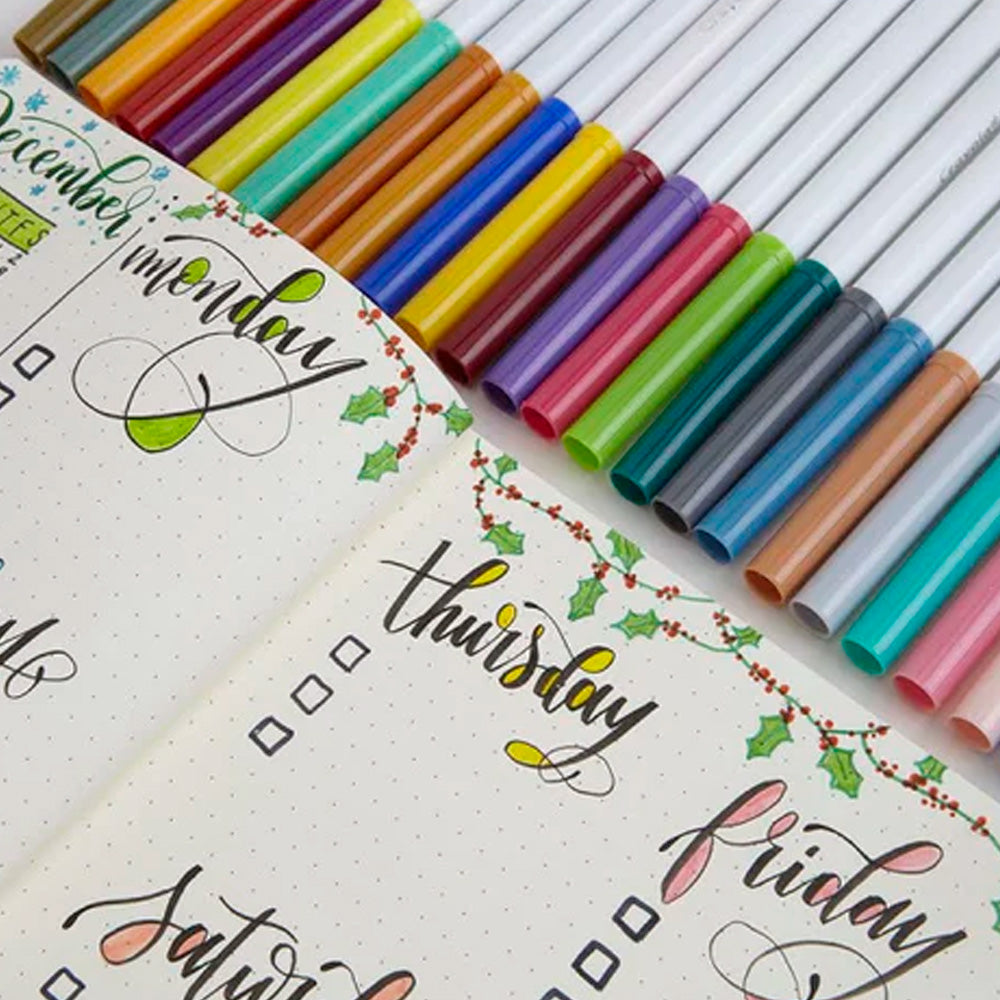 December
monday
thursday
friday
satur